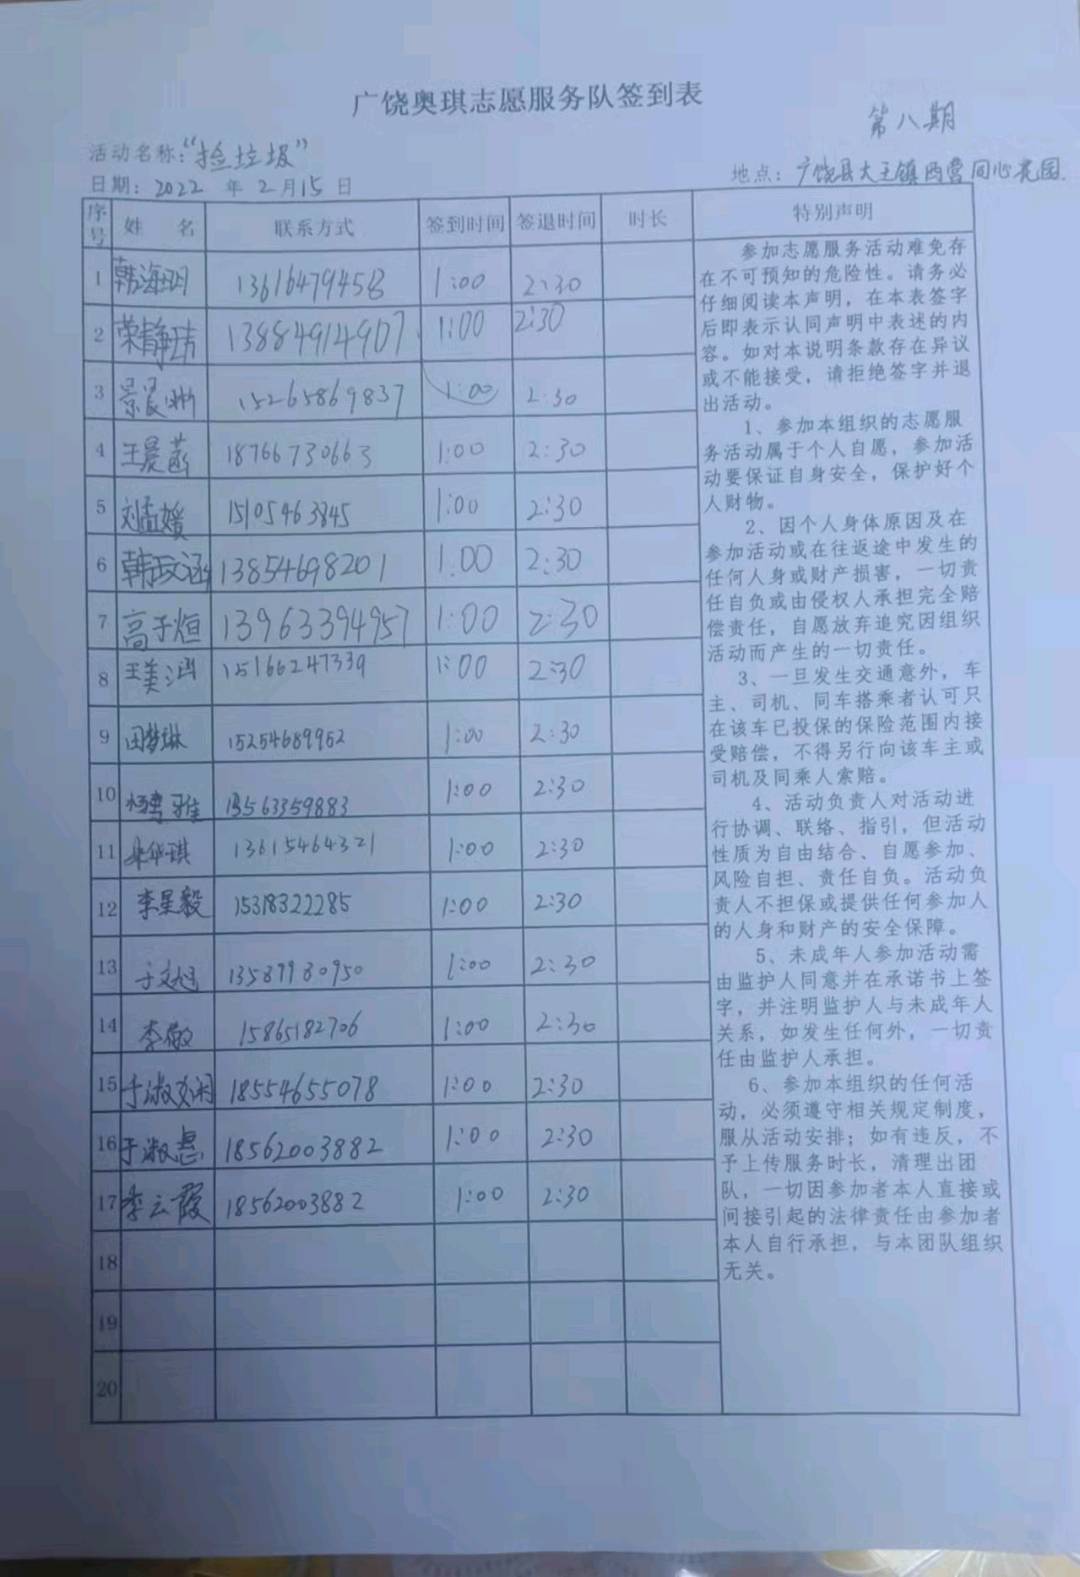 广饶奥琪志愿服务队签到表
第八期
活动名称:“捡垃圾”
地点:广饶县大王镇西营同心花园.
日期:2022年2月15日
序号 姓名 联系方式 签到时间 签退时间 时长 特别声明
1 韩海玥 13616479458 1:00 2:30
2 荣静 13884914907 1:00 2:30
3 景晨 15265869837 1:00 2:30
4 王晨菡 18766730663 1:00 2:30
5 刘孟媛 15105463845 1:00 2:30
6 韩政涵 13854698201 1:00 2:30
7 高于烜 13963394957 1:00 2:30
8 王美涵 15166247339 1:00 2:30
9 田梦琳 15254689952 1:00 2:30
10 雅 13563359883 1:00 2:30
11 华琪 13615464321 1:00 2:30
12 李星毅 15318322285 1:00 2:30
13 于文旭 13589980950 1:00 2:30
14 李敏 15865182706 1:00 2:30
15 于淑娴 18554655078 1:00 2:30
16 于淑惠 18562003882 1:00 2:30
17 李云霞 18562003882 1:00 2:30
18
19
20
参加志愿服务活动难免存
在不可预知的危险性。请务必
仔细阅读本声明，在本表签字
后即表示认同声明中表述的内
容。如对本说明条款存在异议
或不能接受，请拒绝签字并退
出活动。
1、参加本组织的志愿服
务活动属于个人自愿，参加活
动要保证自身安全，保护好个
人财物。
2、因个人身体原因及在
参加活动或在往返途中发生的
任何人身或财产损害，一切责
任自负或由侵权人承担完全赔
偿责任，自愿放弃追究因组织
活动而产生的一切责任。
3、一旦发生交通意外，车
主、司机、同车搭乘者认可只
在该车已投保的保险范围内接
受赔偿，不得另行向该车主或
司机及同乘人索赔。
4、活动负责人对活动进
行协调、联络、指引，但活动
性质为自由结合、自愿参加、
风险自担、责任自负。活动负
责人不担保或提供任何参加人
的人身和财产的安全保障。
5、未成年人参加活动需
由监护人同意并在承诺书上签
字，并注明监护人与未成年人
关系，如发生任何外，一切责
任由监护人承担。
6、参加本组织的任何活
动，必须遵守相关规定制度，
服从活动安排；如有违反，不
予上传服务时长，清理出团
队，一切因参加者本人直接或
间接引起的法律责任由参加者
本人自行承担，与本团队组织
无关。